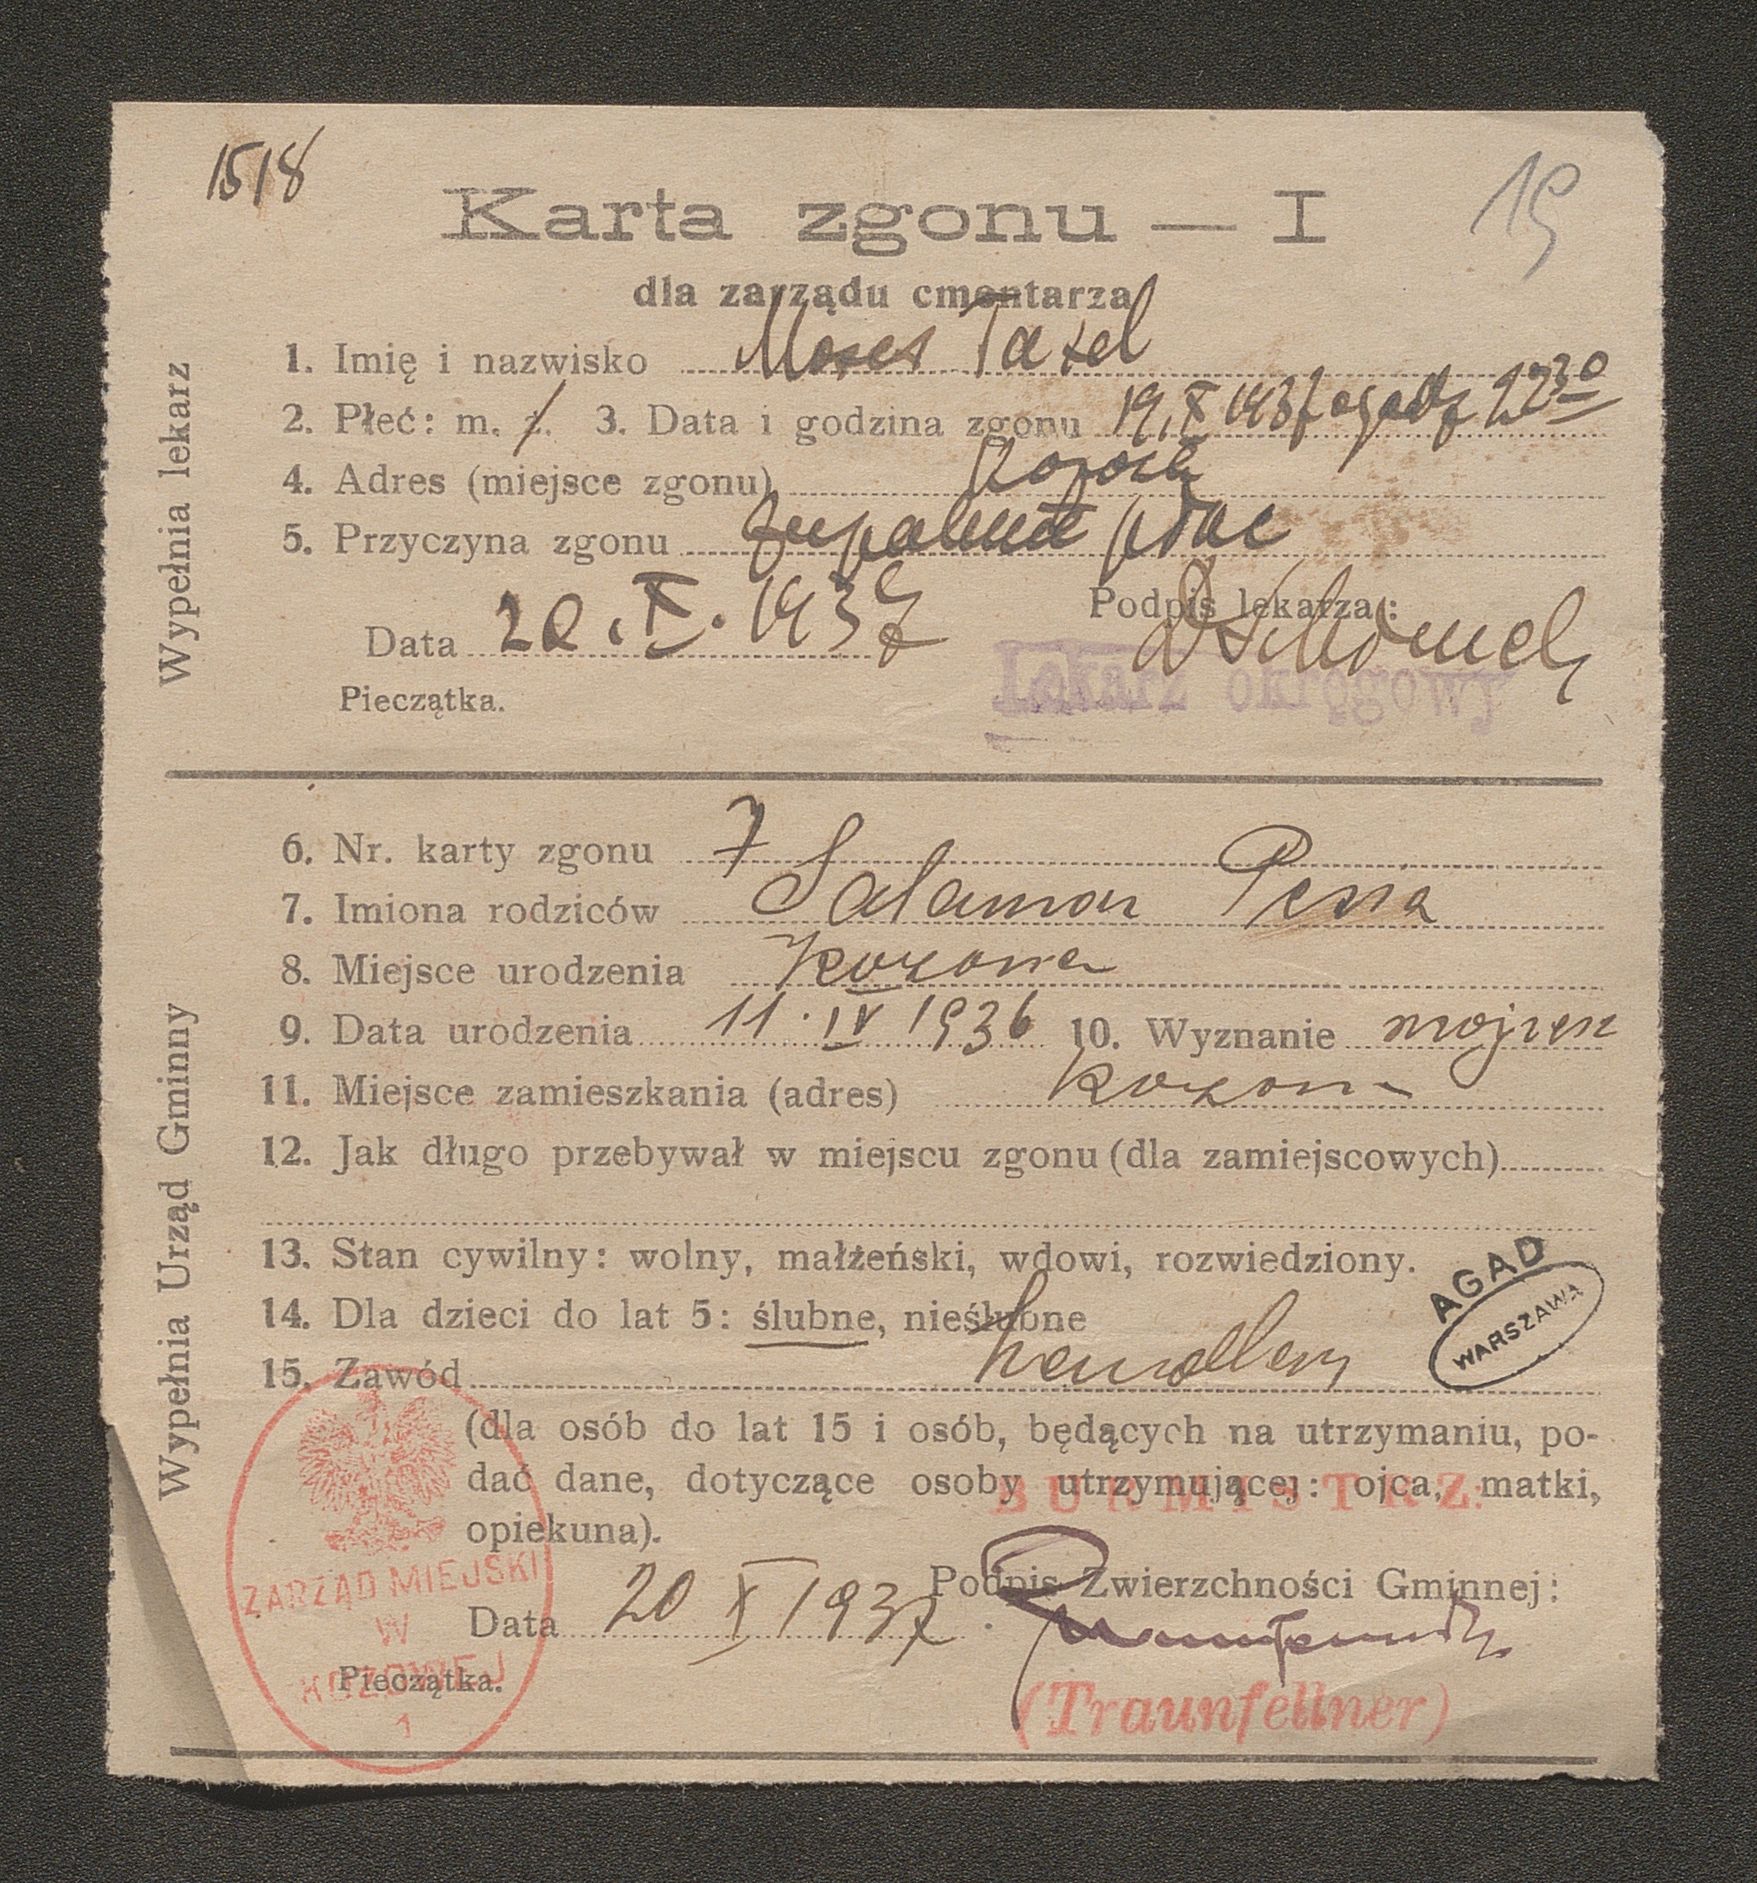 1518
19
Karta zgonu — I
dla zarządu cmentarza
Wypełnia lekarz
1. Imię i nazwisko Moses Taxel
2. Płeć: m. ż. 3. Data i godzina zgonu 19.X 1937 o godz 22 30
4. Adres (miejsce zgonu) Kozowa
5. Przyczyna zgonu zapalenie płuc
Podpis lekarza:
Data 20.X.1937
Lekarz okręgowy
Pieczątka.
Wypełnia Urząd Gminny
6. Nr. karty zgonu 7
7. Imiona rodziców Salamon Pesia
8. Miejsce urodzenia Kozowa
9. Data urodzenia 11.IV 1936 10. Wyznanie mojżesz
11. Miejsce zamieszkania (adres) Kozowa
12. Jak długo przebywał w miejscu zgonu (dla zamiejscowych)
13. Stan cywilny: wolny, małżeński, wdowi, rozwiedziony.
14. Dla dzieci do lat 5: ślubne, nieślubne
AGAD
WARSZAWA
15. Zawód
(dla osób do lat 15 i osób, będących na utrzymaniu, po-
dać dane, dotyczące osoby utrzymującej: ojca, matki,
opiekuna).
BURMISTRZ:
Podpis Zwierzchności Gminnej:
Data 20 X 1937
Pieczątka.
(Traunfellner)
ZARZĄD MIEJSKI
W
KOZOWEJ
1